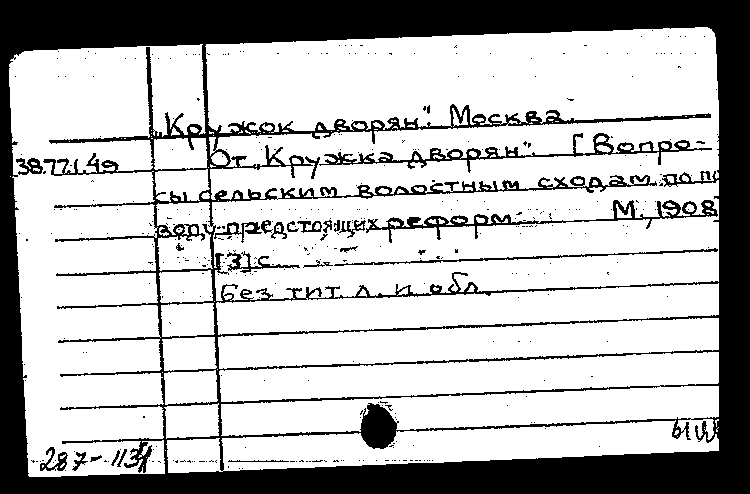 „Кружок дворян". Москва.
38.77.1.49 От „Кружка дворян". [Вопро-
сы сельским волостным сходам по по
воду предстоящих реформ М., 1908
[3] с.
Без тит. л. и обл.